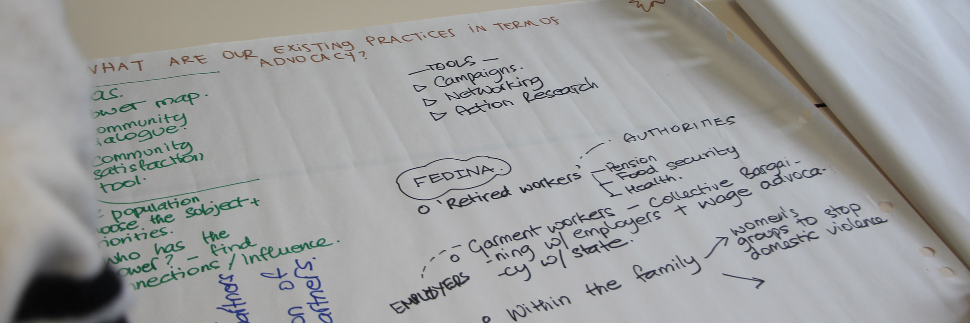 WHAT ARE OUR EXISTING PRACTICES IN TERM OF
ADVOCACY?
as.
ower map.
ommunity
ialogue.
community
satisfaction
tool.
population
oose the subject +
iorities.
who has the
ower? – find
nnections / influence.
— TOOLS —
▷ Campaigns.
▷ Networking
▷ Action Research
FEDINA
AUTHORITIES
o 'Retired workers'
Pension
Food security
Health.
o Garment workers – collective Bargai-
-ning w/ employers + wage advoca-
-cy w/ state.
EMPLOYERS
o Within the family
women's
groups to stop
domestic violence